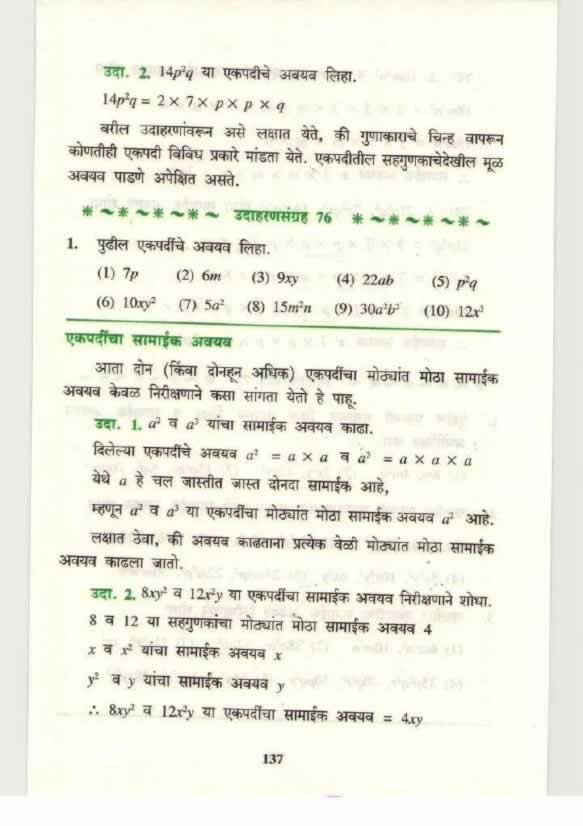 उदा. 2. 14p²q या एकपदीचे अवयव लिहा.
14p²q = 2 × 7 × p × p × q
वरील उदाहरणांवरून असे लक्षात येते, की गुणाकाराचे चिन्ह वापरून
कोणतीही एकपदी विविध प्रकारे मांडता येते. एकपदीतील सहगुणकाचेदेखील मूळ
अवयव पाडणे अपेक्षित असते.
उदाहरणसंग्रह 76
1. पुढील एकपदींचे अवयव लिहा.
(1) 7p (2) 6m (3) 9xy (4) 22ab (5) p²q
(6) 10xy² (7) 5a² (8) 15m²n (9) 30a²b² (10) 12x³
एकपदींचा सामाईक अवयव
आता दोन (किंवा दोनहून अधिक) एकपदींचा मोठ्यांत मोठा सामाईक
अवयव केवळ निरीक्षणाने कसा सांगता येतो हे पाहू.
उदा. 1. a² व a³ यांचा सामाईक अवयव काढा.
दिलेल्या एकपदींचे अवयव a² = a × a व a³ = a × a × a
येथे a हे चल जास्तीत जास्त दोनदा सामाईक आहे,
म्हणून a² व a³ या एकपदींचा मोठ्यांत मोठा सामाईक अवयव a² आहे.
लक्षात ठेवा, की अवयव काढताना प्रत्येक वेळी मोठ्यांत मोठा सामाईक
अवयव काढला जातो.
उदा. 2. 8xy² व 12x²y या एकपदींचा सामाईक अवयव निरीक्षणाने शोधा.
8 व 12 या सहगुणकांचा मोठ्यांत मोठा सामाईक अवयव 4
x व x² यांचा सामाईक अवयव x
y² व y यांचा सामाईक अवयव y
∴ 8xy² व 12x²y या एकपदींचा सामाईक अवयव = 4xy
137